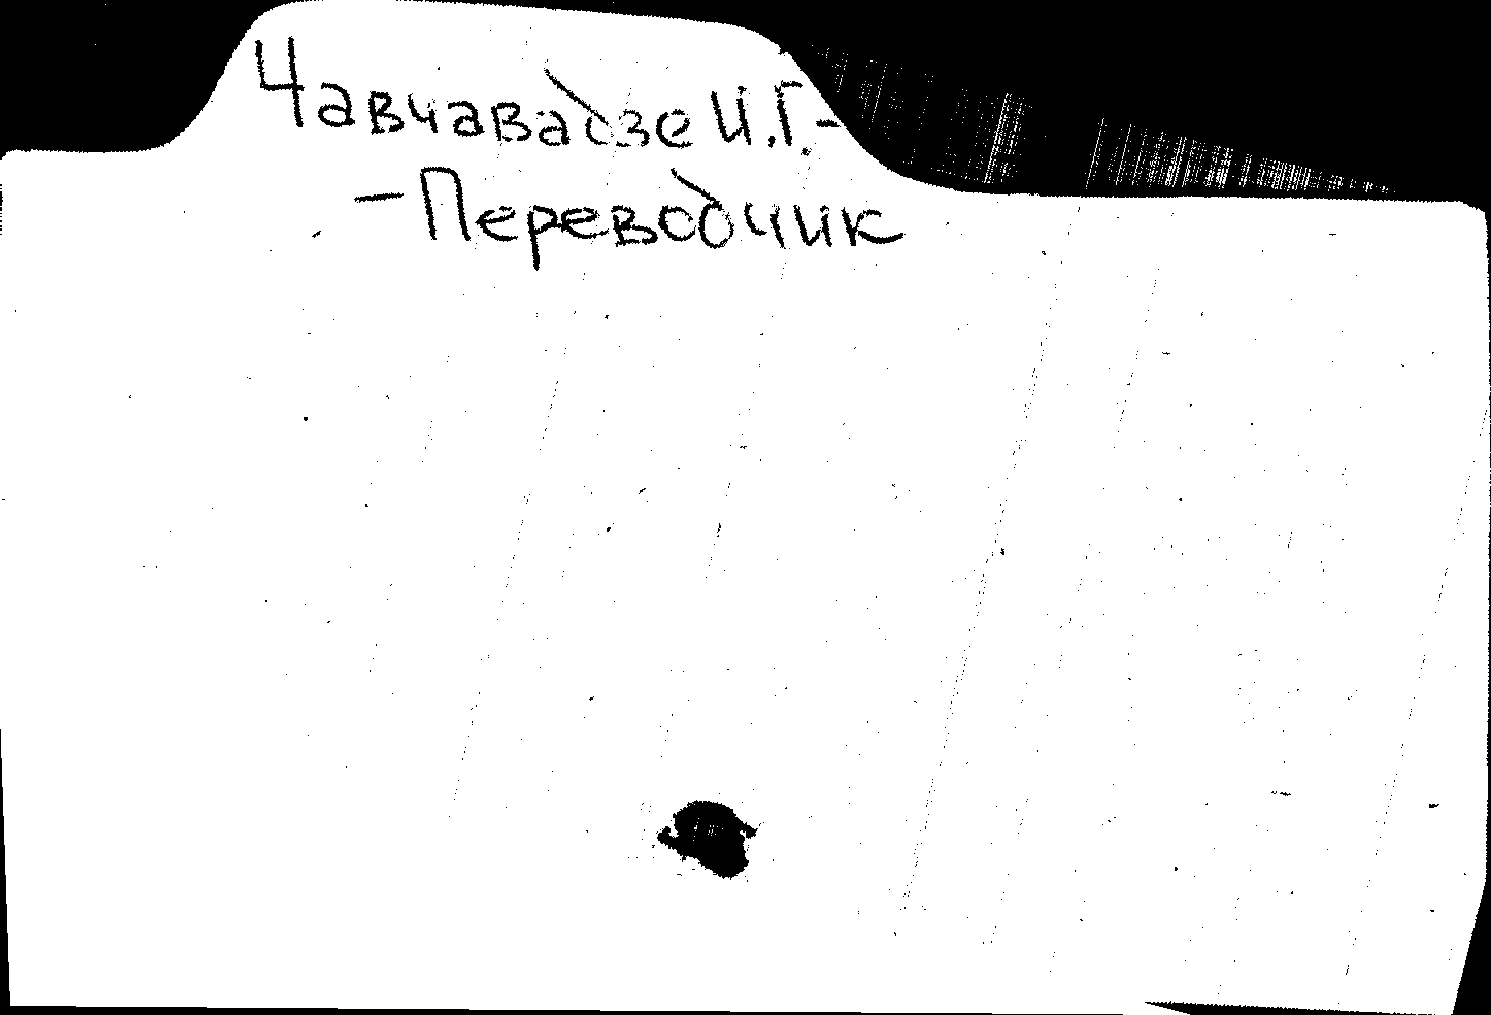 Чавчавадзе И.Г.-
-Переводчик